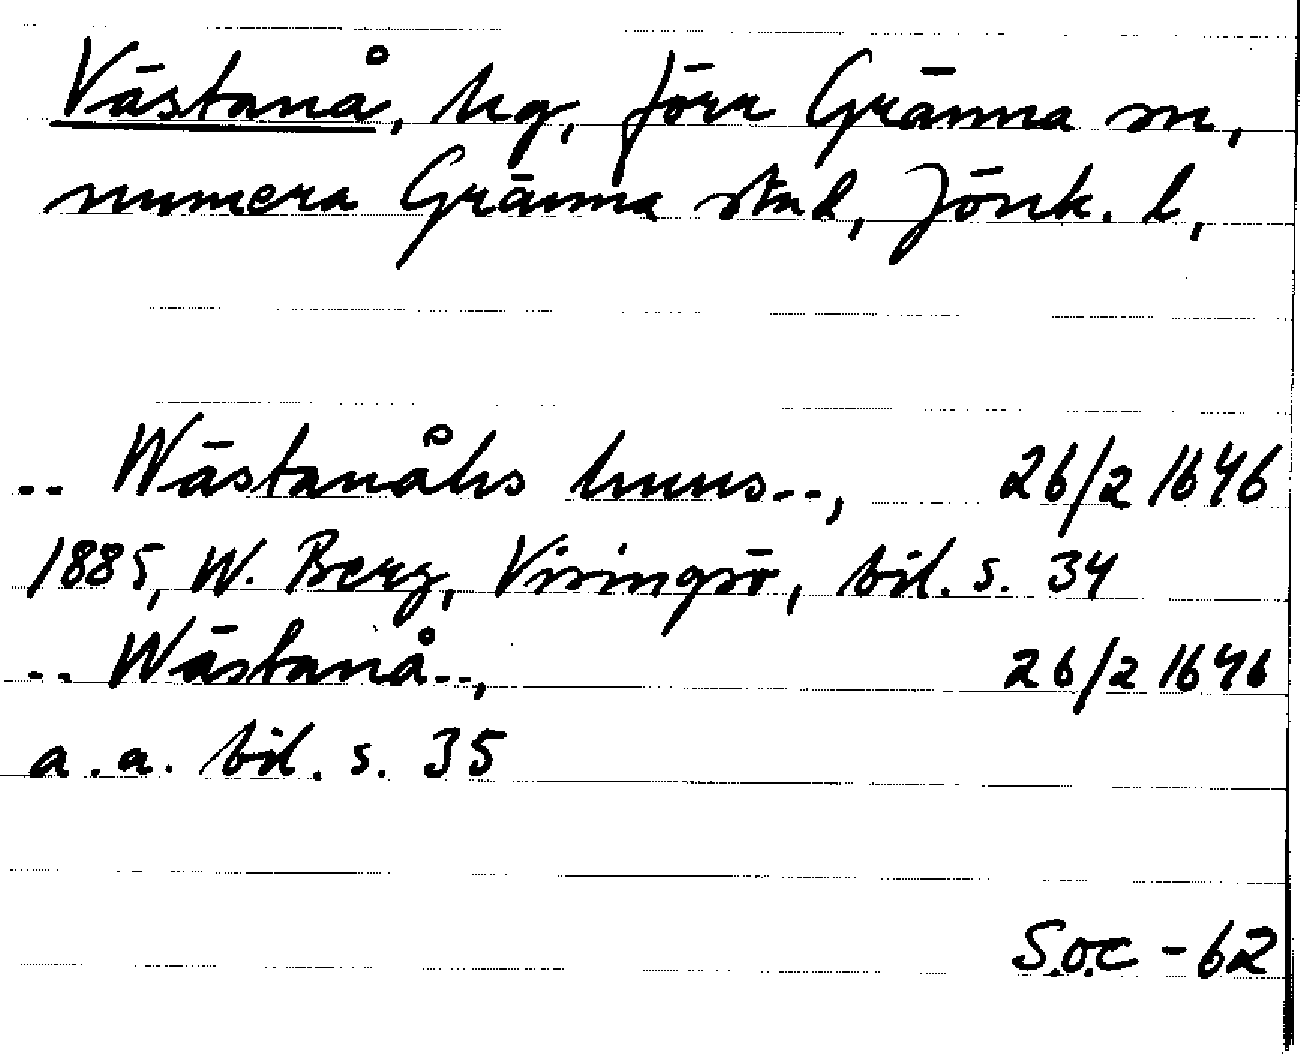 Västanå, hg, förr Gränna sn,
numera Gränna stad, Jönk. l,
.. Wästanåhs huus.., 26/2 1646
1885, W. Berg, Visingsö, bil. s. 34
.. Wästanå.., 26/2 1646
a.a. bil. s. 35
S.o.c - 62